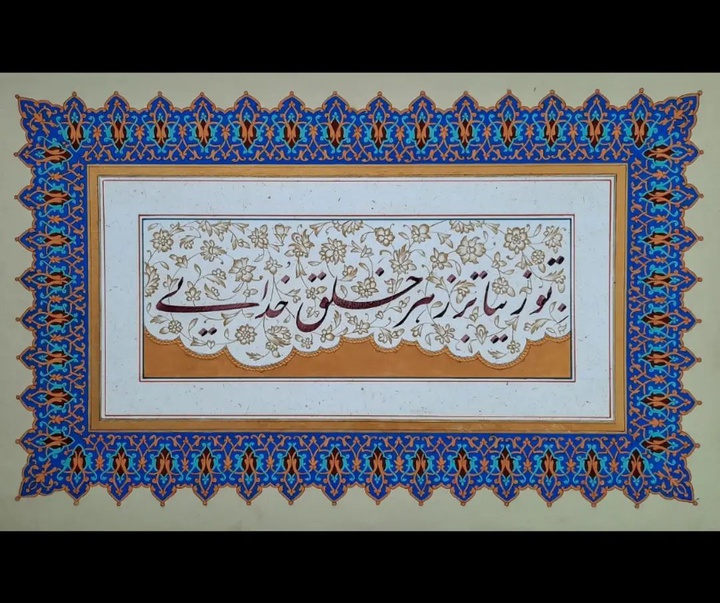 تو زیباتر ز هر خلق خدایی